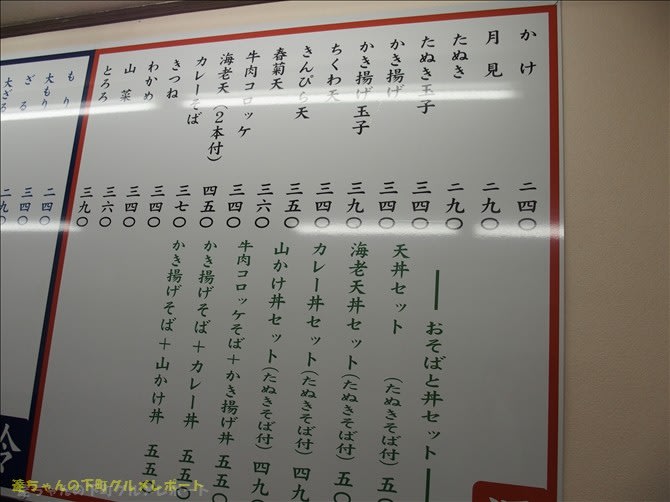 かけ 二四〇
月見 二九〇
たぬき 二九〇
たぬき玉子 三四〇
かき揚げ 三四〇
かき揚げ玉子 三九〇
ちくわ天 三四〇
きんぴら天 三五〇
春菊天 三六〇
牛肉コロッケ 三四〇
海老天(2本付) 四五〇
カレーそば 三七〇
きつね 三四〇
わかめ 三四〇
山菜 三六〇
とろろ 三九〇
おそばと丼セット
天丼セット (たぬきそば付) 五
海老天丼セット(たぬきそば付) 五〇
カレー丼セット(たぬきそば付) 四九
山かけ丼セット(たぬきそば付) 四九
牛肉コロッケそば+かき揚げ丼 五五〇
かき揚げそば+カレー丼 五五〇
かき揚げそば+山かけ丼 五五
もり 二四〇
大もり 三四〇
ざる 二九〇
大ざる
冷
塗ちゃんの下町グルメレポート